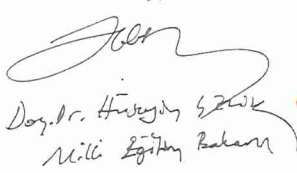 Doç. Dr. Hüseyin
Milli Eğitim Bakanı